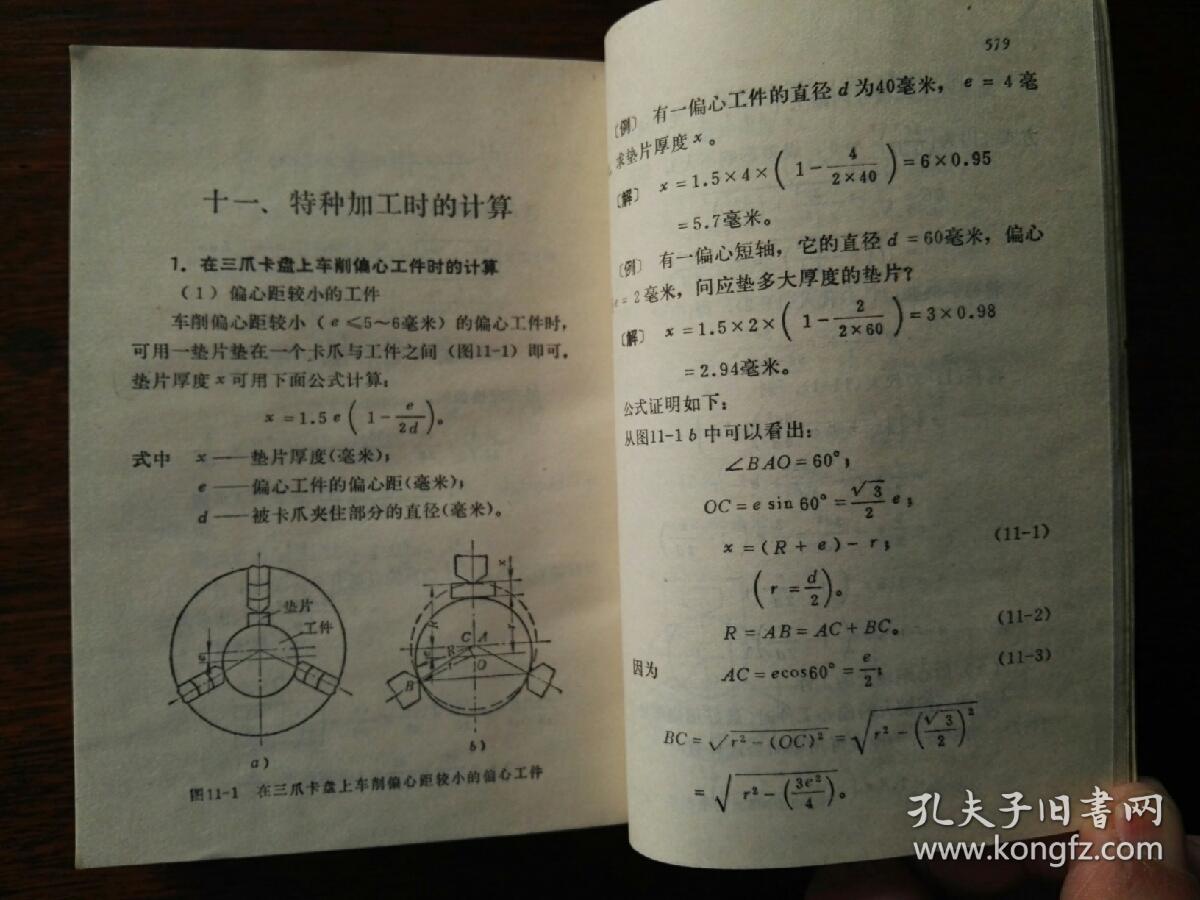 十一、特种加工时的计算
1. 在三爪卡盘上车削偏心工件时的计算
(1) 偏心距较小的工件
车削偏心距较小（e≤5～6毫米）的偏心工件时,
可用一垫片垫在一个卡爪与工件之间（图11-1）即可.
垫片厚度x可用下面公式计算:
x=1.5e(1-e/2d)。
式中 x——垫片厚度(毫米);
e——偏心工件的偏心距(毫米);
d——被卡爪夹住部分的直径(毫米)。
垫片
工件
e
a)
x
C A
R
O
r
B
b)
图11-1 在三爪卡盘上车削偏心距较小的偏心工件
579
〔例〕 有一偏心工件的直径d为40毫米, e=4毫
求垫片厚度x。
〔解〕 x=1.5×4×(1-4/2×40)=6×0.95
=5.7毫米。
〔例〕 有一偏心短轴, 它的直径d=60毫米, 偏心
e=2毫米, 问应垫多大厚度的垫片?
〔解〕 x=1.5×2×(1-2/2×60)=3×0.98
=2.94毫米。
公式证明如下:
从图11-1 b 中可以看出:
∠BAO=60°;
OC=e sin 60°=√3/2 e;
x=(R+e)-r; (11-1)
(r=d/2)。
R=AB=AC+BC。 (11-2)
因为 AC=ecos60°=e/2; (11-3)
BC=√r²-(OC)²=√r²-(√3/2)²
=√r²-(3e²/4)。
孔夫子旧书网
www.kongfz.com